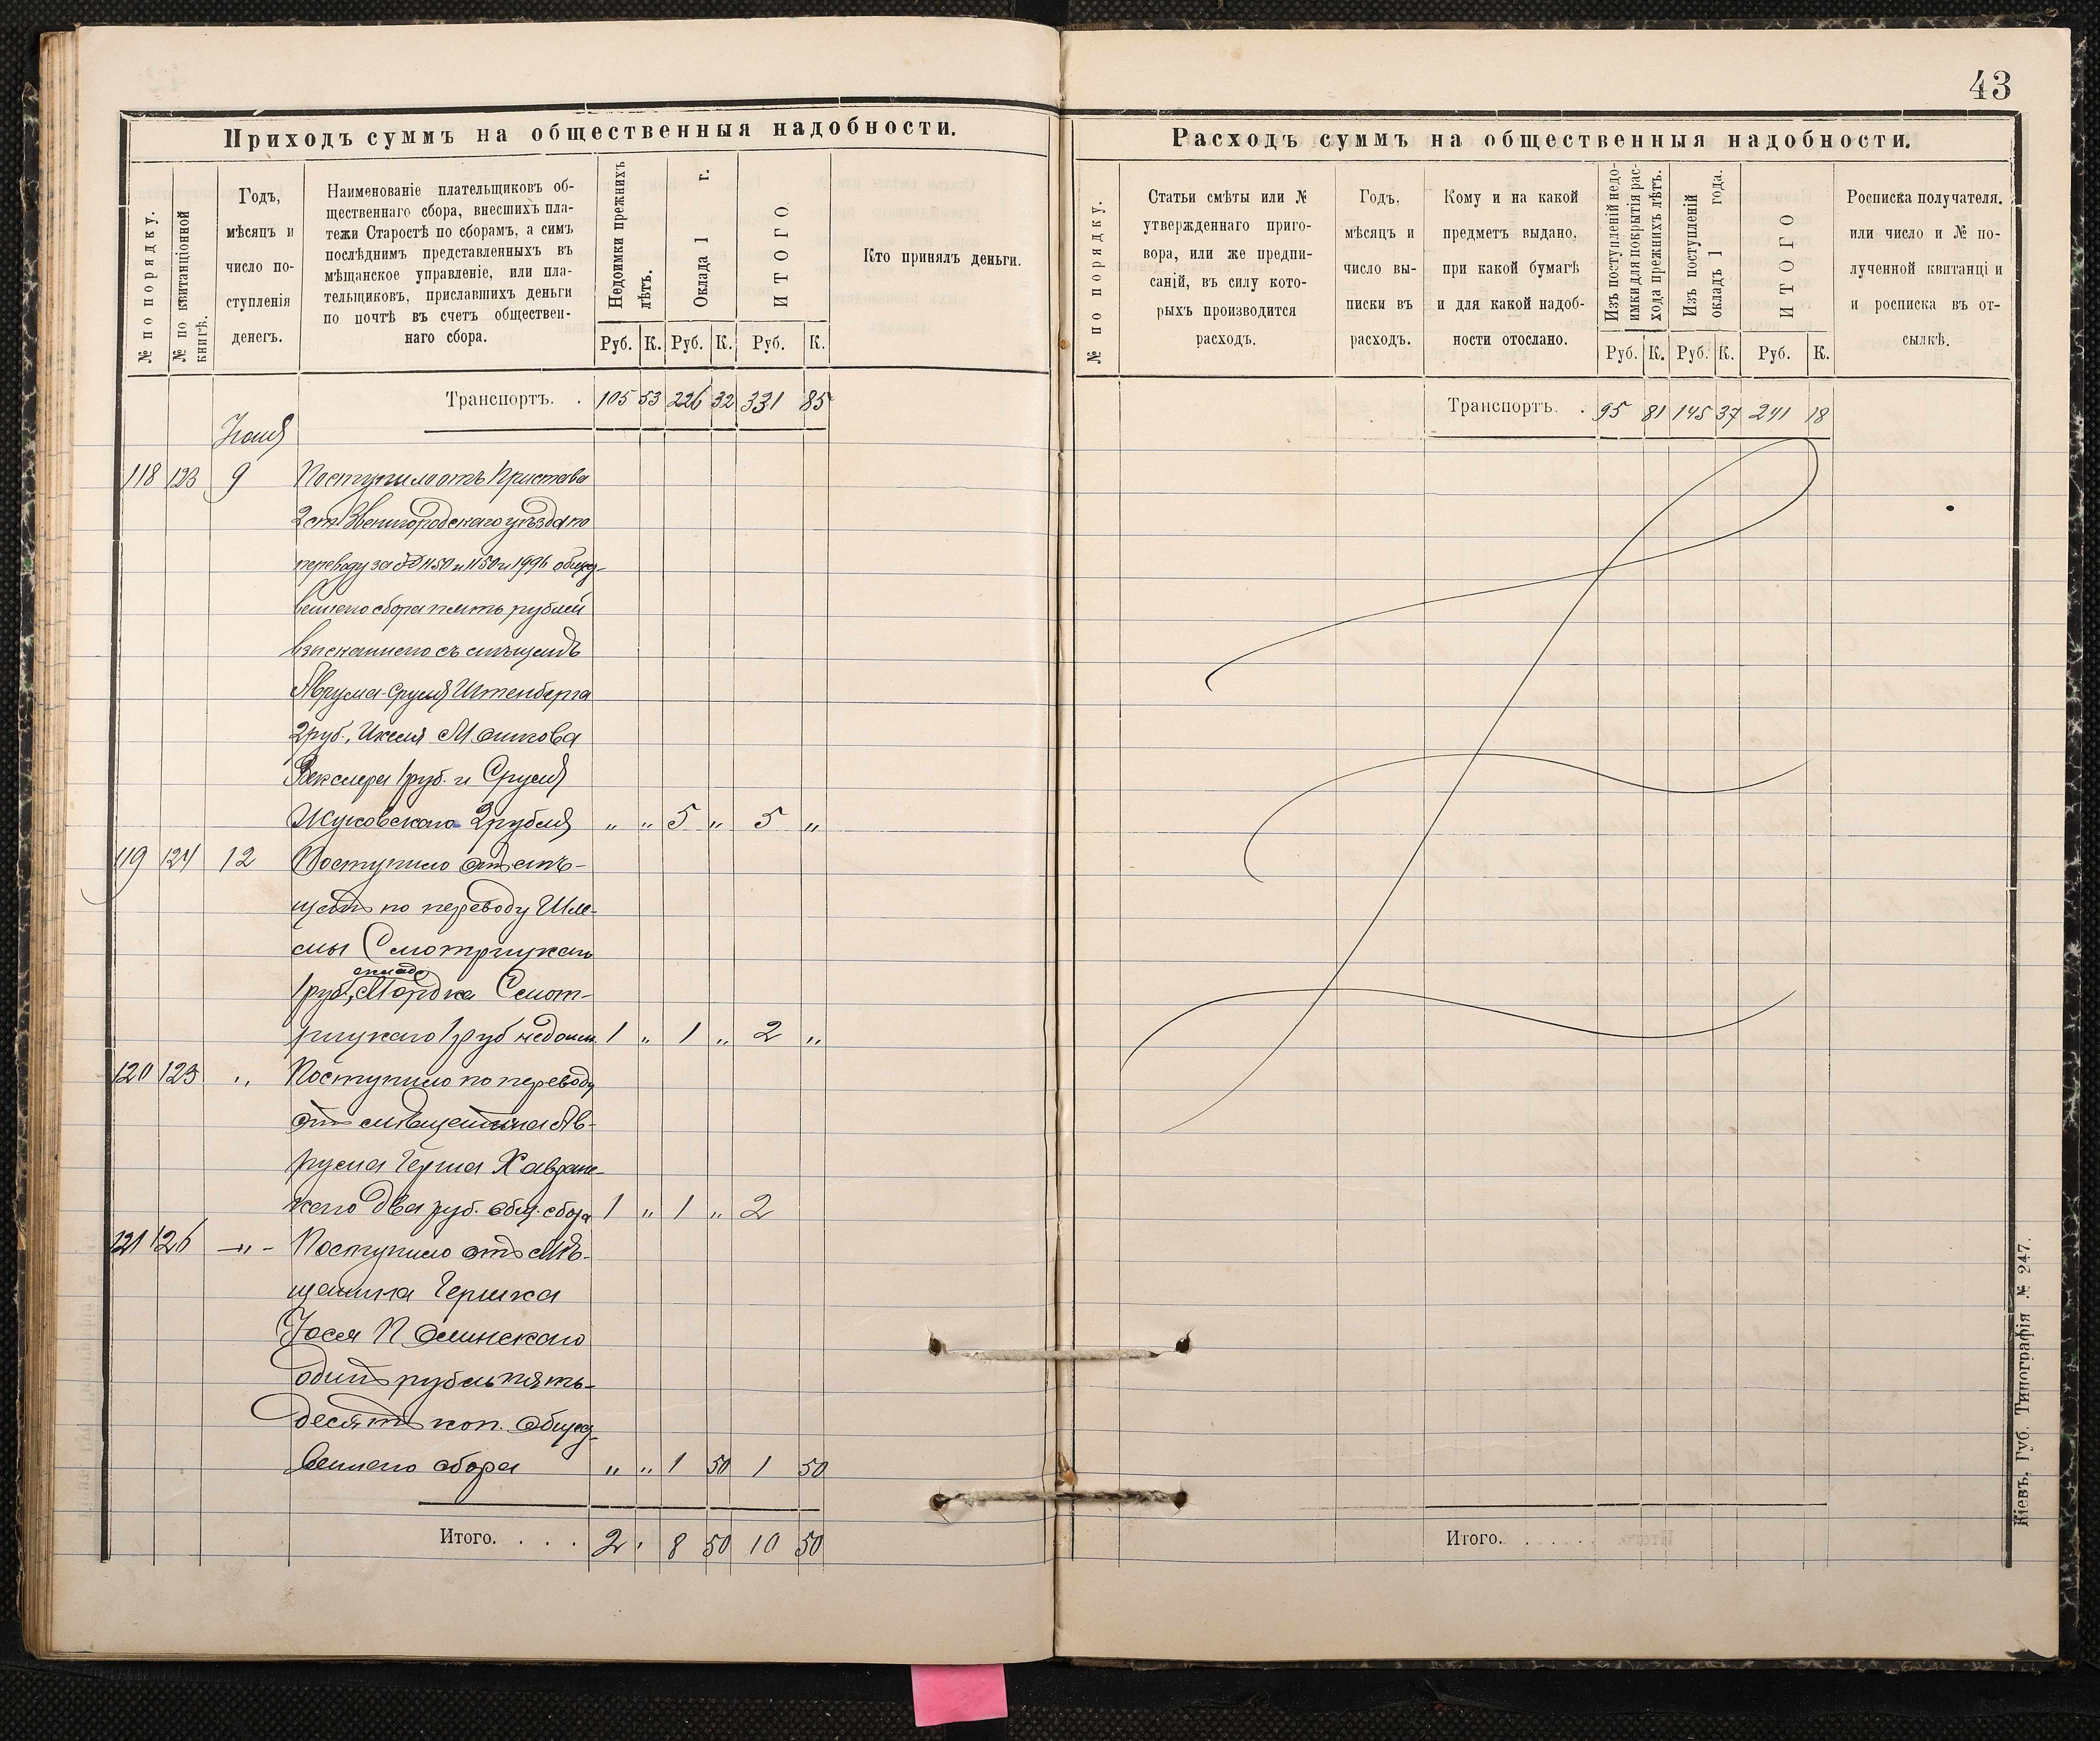 43
Приходъ суммъ на общественныя надобности.
№ по порядку.
№ по квитанціонной книгѣ.
Годъ,
мѣсяцъ и
число по-
ступленія
денегъ.
Наименованіе плательщиковъ об-
щественнаго сбора, внесшихъ пла-
тежи Старостѣ по сборамъ, а симъ
послѣднимъ представленныхъ въ
мѣщанское управленіе, или пла-
тельщиковъ, приславшихъ деньги
по почтѣ въ счетъ обществен-
наго сбора.
Недоимки прежнихъ
лѣтъ.
Оклада 1 г.
ИТОГО
Руб. К. Руб. К. Руб. К.
Кто принялъ деньги.
Транспортъ. . 105 53 226 32 331 85
118 123 9 Поступило отъ Пристава
2 ст Звенигородскаго уѣзда по
переводу за № 1150 и 1150 и 1996 общед-
веннаго сбора пять рублей
взысканнаго съ мѣщанъ
Аврума-Сруля Штенберга
2 руб., Икеля Мошкова
Векслера 1 руб. и Сруля
Жуковскаго 2 рубля „ „ 5 „ 5 „
119 124 12 Поступило отъ мѣ-
щанъ по переводу Шле-
мы Смотрицкаго
оклада
1 руб, Мордка Смот-
рицкаго 1 руб недоим. 1 „ 1 „ 2 „
120 125 „ Поступило по переводу
отъ мѣщанина Ав-
рума Герша Хавранс-
каго два руб. общ. сбора 1 „ 1 „ 2
121 126 -„- Поступило отъ Мѣ-
щанина Гершка
Іося Полинскаго
одинъ рубль пять-
десятъ коп. общед-
веннаго сбора „ „ 1 50 1 50
Итого. . . . 2 „ 8 50 10 50
Расходъ суммъ на общественныя надобности.
№ по порядку.
Статьи смѣты или №
утвержденнаго приго-
вора, или же предпи-
саній, въ силу кото-
рыхъ производится
расходъ.
Годъ,
мѣсяцъ и
число вы-
писки въ
расходъ.
Кому и на какой
предметъ выдано,
при какой бумагѣ
и для какой надоб-
ности отослано.
Изъ поступленій недо-
имки для покрытія рас-
хода прежнихъ лѣтъ.
Изъ поступленій
окладъ 1 года.
ИТОГО
Руб. К. Руб. К. Руб. К.
Росписка получателя,
или число и № по-
лученной квитанціи
и росписка въ от-
сылкѣ.
Транспортъ. . 95 81 145 37 241 18
Итого. . . . . .
Кіевъ, Губ. Типографія № 247.